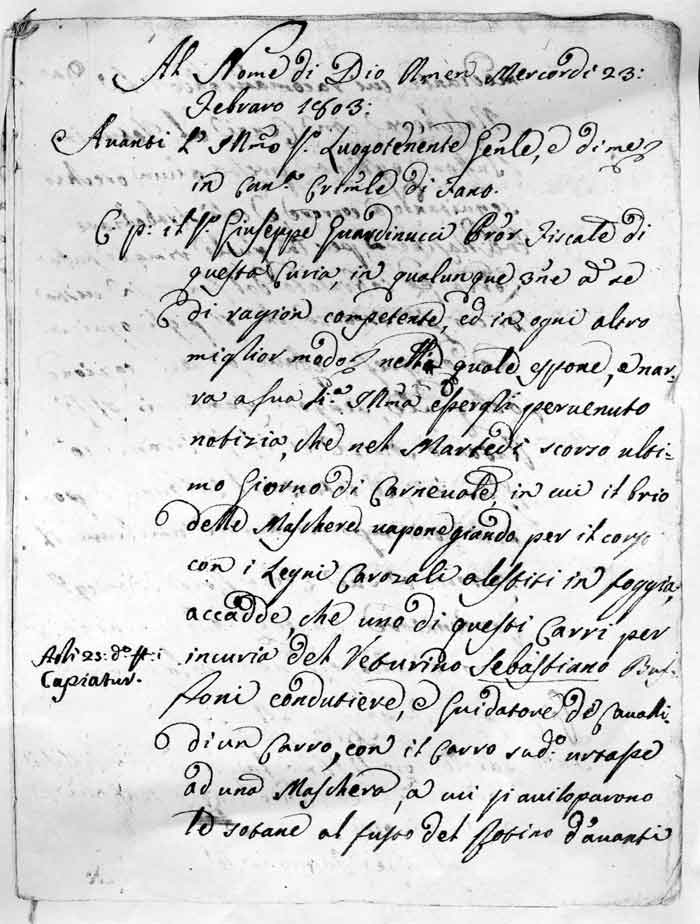 Al Nome di Dio Amen Mercordi 23:
Febraro 1803:
Avanti l'Illmo Sr. Luogotenente Genle, e di me
in Canc. Crimle di Fano.
C p: il Sr. Giuseppe Guardinucci Pror Fiscale di
questa Curia, in qualunque ad se
di ragion competente, ed in ogni altro
miglior modo nella quale espone, e nar-
ra a sua Sria Illma esergli pervenuto
notizia, che nel Martedi scorso ulti-
mo Giorno di Carnevale, in cui il brio
delle Maschere vaponegiando per il corso
con i Legni Carozali alestiti in foggia,
accadde, che uno di questi Carri per
incuria del Veturino Sebastiano Buf-
foni condutiere, e Guidatore de Cavalli
di un Carro, con il Carro sudo: urtasse
ad una Maschera, a cui si aviloparono
le sotane al fusto del Rotino d'avanti
Adi 23: do
Capiatur.